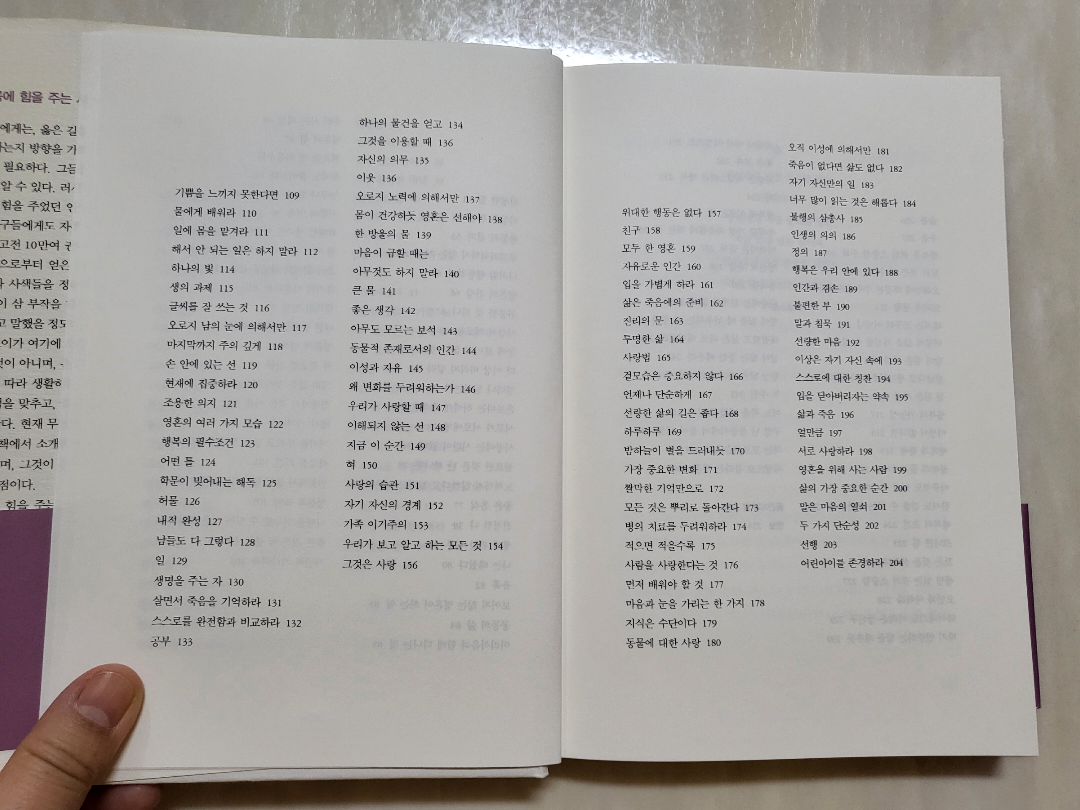 힘을 주는
에게는, 옳은 길
하는지 방향을 가
필요하다. 그들
알 수 있다. 러시
힘을 주었던 인
구들에게도 자
고전 10만여 권
으로부터 얻은
사색들을 정
이 삼 부자을
고 말했을 정도
이가 여기에
것이 아니며,
따라 생활하
을 맞추고,
다. 현재 무
책에서 소개
며, 그것이
점이다.
힘을 주는
기쁨을 느끼지 못한다면 109
물에게 배워라 110
일에 몸을 맡겨라 111
해서 안 되는 일은 하지 말라 112
하나의 빛 114
생의 과제 115
글씨를 잘 쓰는 것 116
오로지 남의 눈에 의해서만 117
마지막까지 주의 깊게 118
손 안에 있는 선 119
현재에 집중하라 120
조용한 의지 121
영혼의 여러 가지 모습 122
행복의 필수조건 123
어떤 틀 124
학문이 빚어내는 해독 125
허물 126
내적 완성 127
남들도 다 그렇다 128
일 129
생명을 주는 자 130
살면서 죽음을 기억하라 131
스스로를 완전함과 비교하라 132
공부 133
하나의 물건을 얻고 134
그것을 이용할 때 136
자신의 의무 135
이웃 136
오로지 노력에 의해서만 137
몸이 건강하듯 영혼은 선해야 138
한 방울의 몸 139
마음이 급할 때는
아무것도 하지 말라 140
큰 몸 141
좋은 생각 142
아무도 모르는 보석 143
동물적 존재로서의 인간 144
이성과 자유 145
왜 변화를 두려워하는가 146
우리가 사랑할 때 147
이해되지 않는 선 148
지금 이 순간 149
혀 150
사랑의 습관 151
자기 자신의 경계 152
가족 이기주의 153
우리가 보고 알고 하는 모든 것 154
그것은 사랑 156
위대한 행동은 없다 157
친구 158
모두 한 영혼 159
자유로운 인간 160
입을 가볍게 하라 161
삶은 죽음에의 준비 162
진리의 문 163
투명한 삶 164
사랑법 165
겉모습은 중요하지 않다 166
언제나 단순하게 167
선량한 삶의 길은 좁다 168
하루하루 169
밤하늘이 별을 드러내듯 170
가장 중요한 변화 171
짤막한 기억만으로 172
모든 것은 뿌리로 돌아간다 173
병의 치료를 두려워하라 174
적으면 적을수록 175
사람을 사랑한다는 것 176
먼저 배워야 할 것 177
마음과 눈을 가리는 한 가지 178
지식은 수단이다 179
동물에 대한 사랑 180
오직 이성에 의해서만 181
죽음이 없다면 삶도 없다 182
자기 자신만의 일 183
너무 많이 읽는 것은 해롭다 184
불행의 삼총사 185
인생의 의의 186
정의 187
행복은 우리 안에 있다 188
인간과 겸손 189
불편한 부 190
말과 침묵 191
선량한 마음 192
이상은 자기 자신 속에 193
스스로에 대한 칭찬 194
입을 닫아버리자는 약속 195
삶과 죽음 196
열만큼 197
서로 사랑하라 198
영혼을 위해 사는 사람 199
삶의 가장 중요한 순간 200
말은 마음의 열쇠 201
두 가지 단순성 202
선행 203
어린아이를 존경하라 204